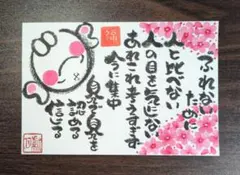 ぶれない
ために
人と比べない
人の目を気にしない
あれこれ考えすぎず
今に集中
自分で自分を
認める
信じる
福